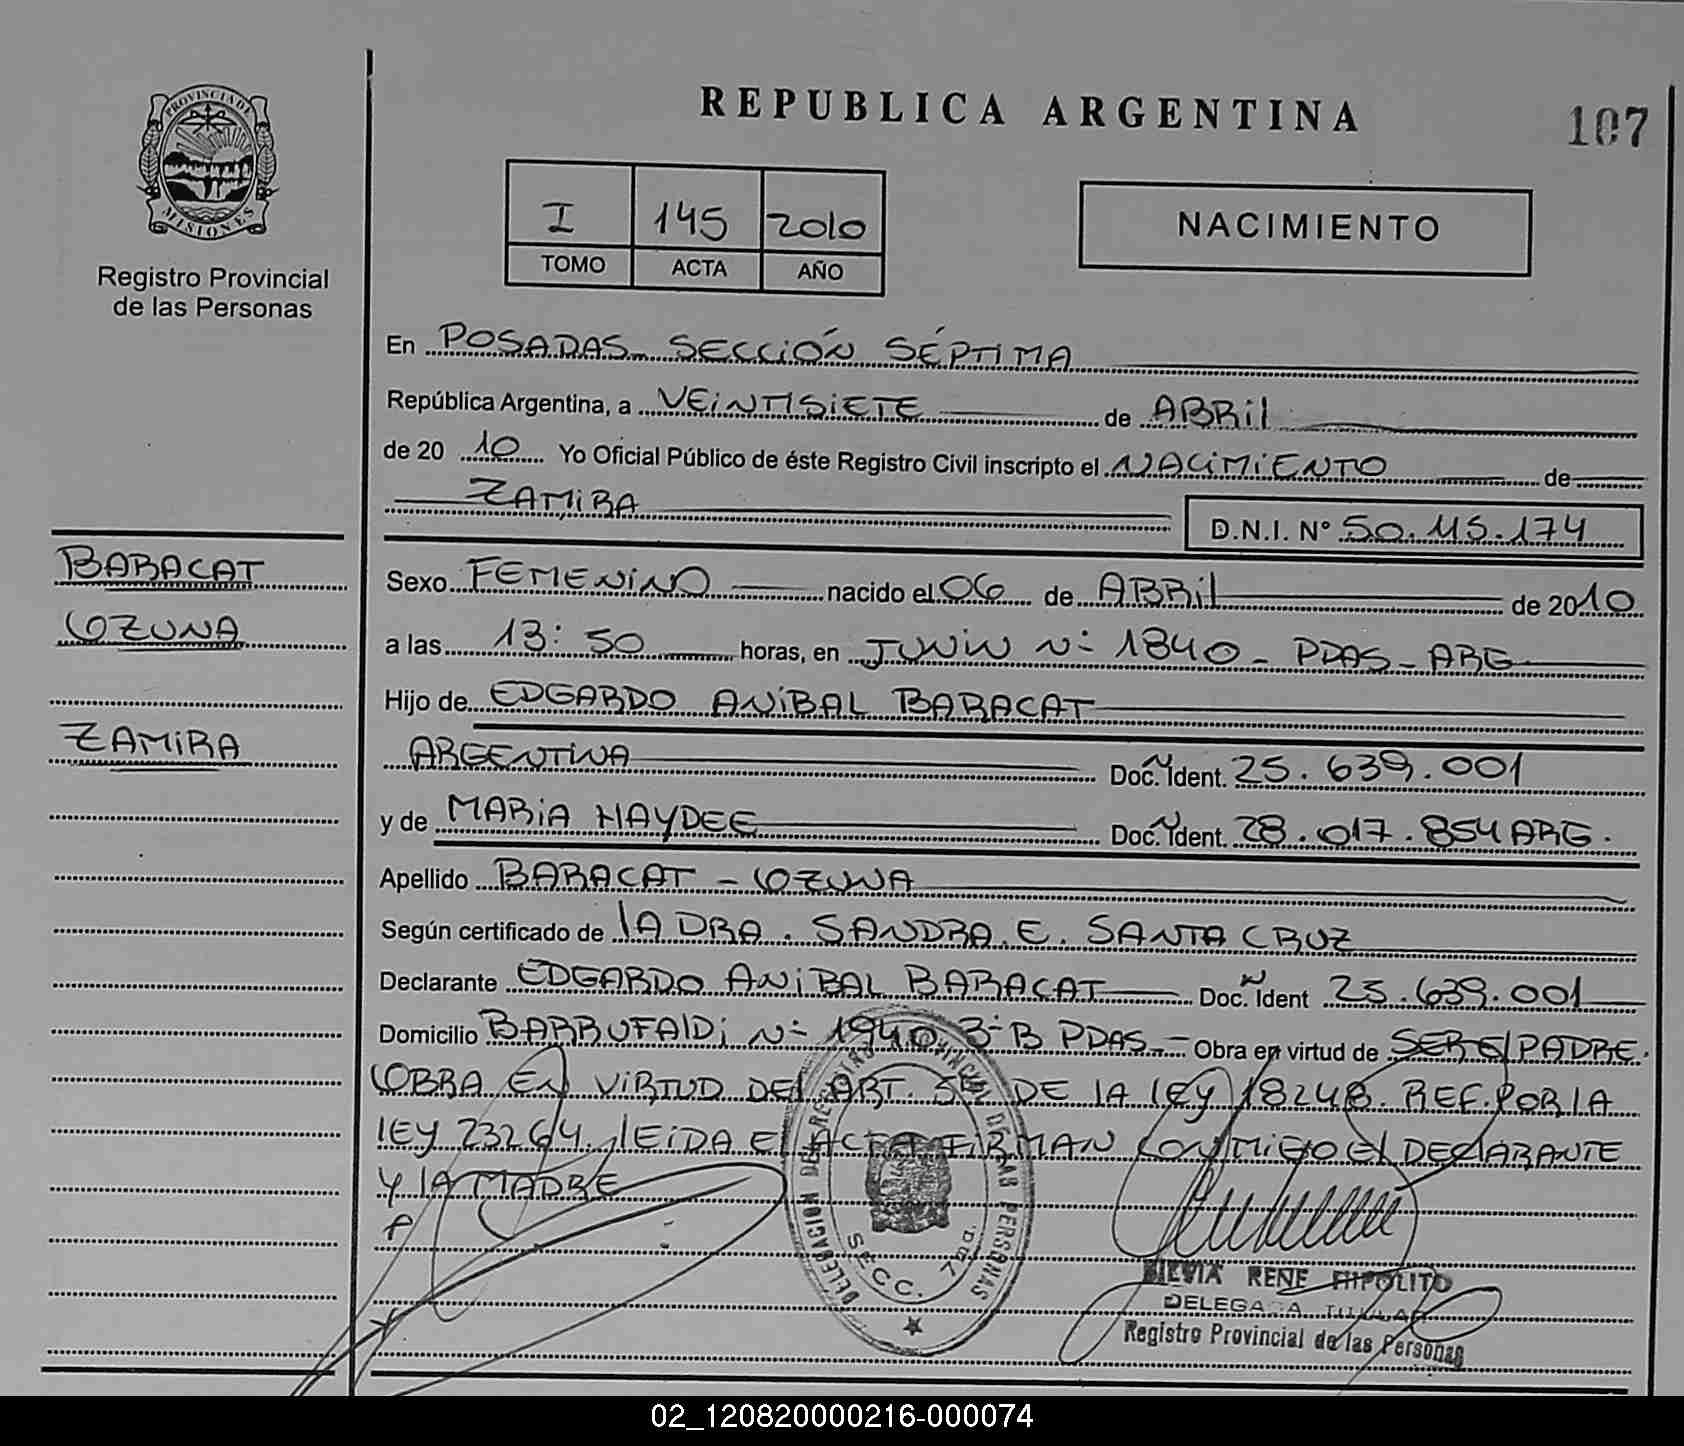 REPUBLICA ARGENTINA
107
PROVINCIA DE
MISIONES
Registro Provincial
de las Personas
I 145 2010
TOMO ACTA AÑO
NACIMIENTO
En POSADAS SECCIÓN SÉPTIMA
República Argentina, a VEINTISIETE de ABRil
de 2010 Yo Oficial Público de éste Registro Civil inscripto el NACIMIENTO de
ZAMIRA
D.N.I. N° 50.115.174
BARACAT
OZUNA
ZAMIRA
Sexo FEMENINO nacido el 06 de ABRil de 2010
a las 13:50 horas, en JUNIN N° 1840 - PDAS - ARG
Hijo de EDGARDO ANIBAL BARACAT
ARGENTINA Doc. Ident. 25.639.001
y de MARIA HAYDEE Doc. Ident. 28.017.854 ARG.
Apellido BARACAT - OZUNA
Según certificado de lA DRA. SANDRA. E. SANTA CRUZ
Declarante EDGARDO ANIBAL BARACAT Doc. Ident 25.639.001
Domicilio BARRUFAlDi N° 1940 3° B PDAS - Obra en virtud de SER El PADRE.
OBRA EN VIRTUD DEl ART. 5° DE lA lEY 18248. REF. POR lA
lEY 23264. lEIDA El ACTA FIRMAN CONMIGO El DEClARANTE
Y lA MADRE
DELEGACION DEL REGISTRO PROVINCIAL DE LAS PERSONAS
SECC. 7ma.
SILVIA RENE HIPOLITO
DELEGADA TITULAR
Registro Provincial de las Personas
02_120820000216-000074